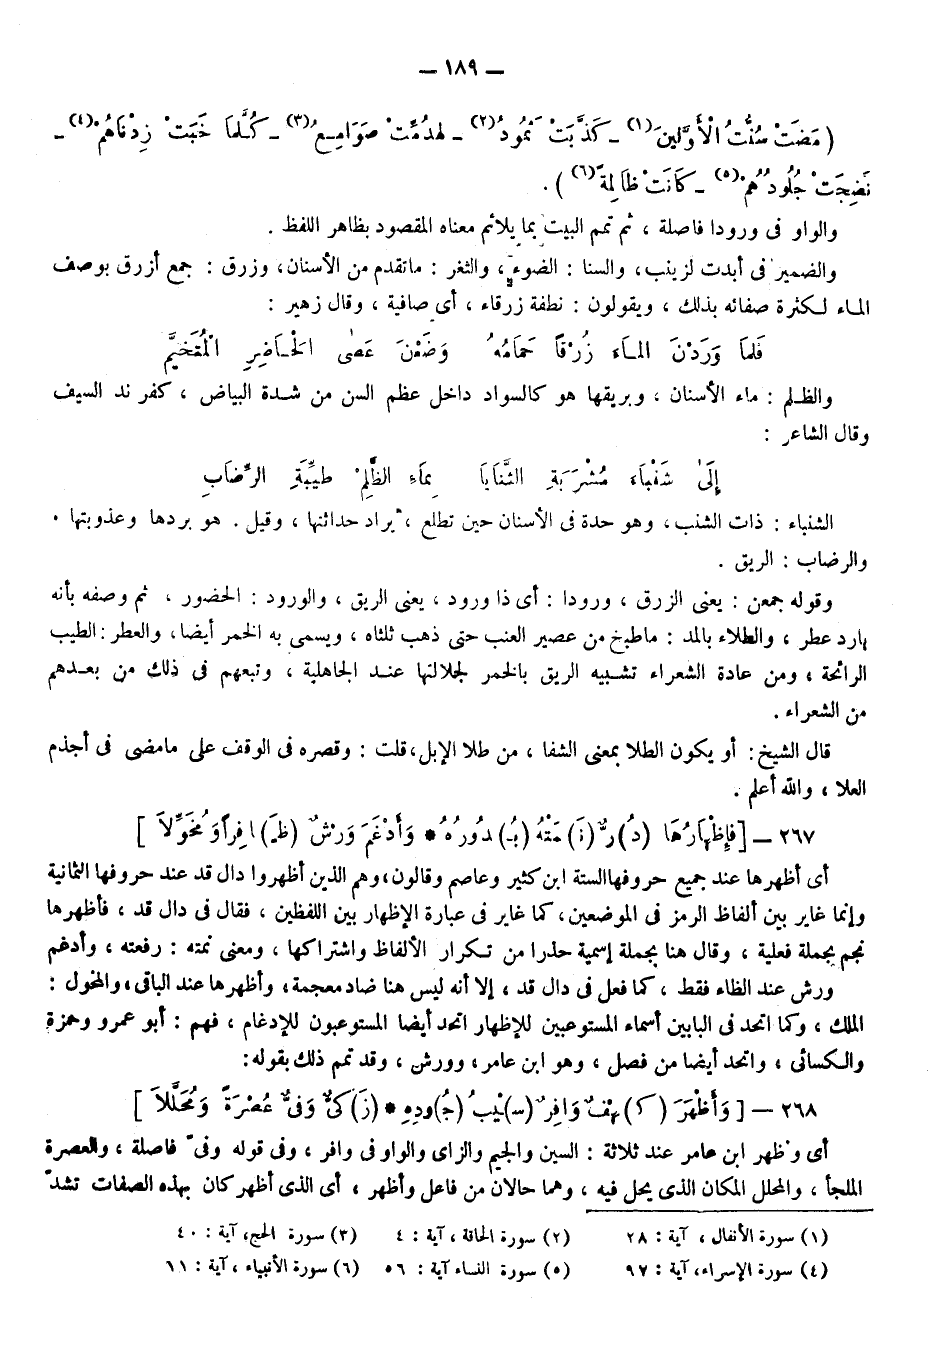 — ١٨٩ —
(مَضَتْ سُنَّتُ الْأَوَّلِينَ(١) ـ كَذَّبَتْ ثَمُودُ(٢) ـ لهدُمِّتْ صَوَامِعُ(٣) ـ كُلَّمَا خَبَتْ زِدْنَاهُمْ(٤) ـ
نَضِجَتْ جُلُودُهُمْ(٥) ـ كَانَتْ ظَالِمَةً(٦)) .
والواو فى ورودا فاصلة ، ثم تمم البيت بما يلائم معناه المقصود بظاهر اللفظ .
والضمير فى أبدت لزينب، والسنا : الضوء، والثغر : ماتقدم من الأسنان، وزرق : جمع أزرق بوصف
الماء لكثرة صفائه بذلك ، ويقولون : نطفة زرقاء ، أى صافية ، وقال زهير :
فَلمَّا وَرَدْنَ المَاءَ زُرْقاً حَمَامُهُ وَضَعْنَ عَصَى الْحَاضِرِ الْمُتَخَيِّمِ
والظلم : ماء الأسنان ، وبريقها هو كالسواد داخل عظم السن من شدة البياض ، كفر ند السيف
وقال الشاعر :
إِلَى شَنْبَاءَ مُشْرَبَةِ الثَّنَايَا بِمَاءِ الظَّلْمِ طَيِّبَةِ الرُّضَابِ
الشنباء : ذات الشنب ، وهو حدة فى الأسنان حين تطلع ، يراد حداثتها ، وقيل . هو بردها وعذوبتها .
والرضاب : الريق .
وقوله جمعن : يعنى الزرق ، ورودا : أى ذا ورود ، يعنى الريق ، والورود : الحضور ، ثم وصفه بأنه
بارد عطر ، والطلاء بالمد : ماطبخ من عصير العنب حتى ذهب ثلثاه ، ويسمى به الخمر أيضا، والعطر : الطيب
الرائحة ، ومن عادة الشعراء تشبيه الريق بالخمر لجلالتها عند الجاهلية ، وتبعهم فى ذلك من بعدهم
من الشعراء .
قال الشيخ : أو يكون الطلا بمعنى الشفا ، من طلا الإبل، قلت : وقصره فى الوقف على مامضى فى أجذم
العلا ، والله أعلم .
٢٦٧ ـ [فَإِظْهَارُهَا (دُ)رٌّ (نَ)مَتْهُ (بُـ)دُورُهُ * وَأَدْغَمَ وَرْشٌ (ظَـ)افِراً وَمُخَوِّلَا ]
أى أظهرها عند جميع حروفها الستة ابن كثير وعاصم وقالون، وهم الذين أظهروا دال قد عند حروفها الثمانية
وإنما غاير بين ألفاظ الرمز فى الموضعين، كما غاير فى عبارة الإظهار بين اللفظين ، فقال فى دال قد ، فأظهرها
نجم بجملة فعلية ، وقال هنا بجملة إسمية حذرا من تكرار الألفاظ واشتراكها ، ومعنى نمته : رفعته ، وأدغم
ورش عند الظاء فقط ، كما فعل فى دال قد ، إلا أنه ليس هنا ضاد معجمة، وأظهرها عند الباقى، والمخول :
الملك ، وكما اتحد فى البابين أسماء المستوعبين للإظهار اتحد أيضا المستوعبون للإدغام ، فهم : أبو عمرو وحمزة
والكسائى ، واتحد أيضا من فصل ، وهو ابن عامر، وورش ، وقد تمم ذلك بقوله:
٢٦٨ ـ [ وَأَظْهَرَ (كَـ)هْفٌ وَافِرٌ (سَـ)يْبُ (جُـ)ودِهِ * (زَ)كِىٌّ وَفِىٌّ عُصْرَةً وَمُحَلَّلَا ]
أى وأظهر ابن عامر عند ثلاثة : السين والجيم والزاى والواو فى وافر ، وفى قوله وفىّ فاصلة ، والعصرة
الملجأ ، والمحلل المكان الذى يحل فيه ، وهما حالان من فاعل وأظهر ، أى الذى أظهر كان بهذه الصفات تشدّ
(١) سورة الأنفال ، آية : ٢٨ (٢) سورة الحاقة ، آية : ٤ (٣) سورة الحج، آية : ٤٠
(٤) سورة الإسراء، آية : ٩٧ (٥) سورة النساء آية : ٥٦ (٦) سورة الأنبياء ، آية : ١١